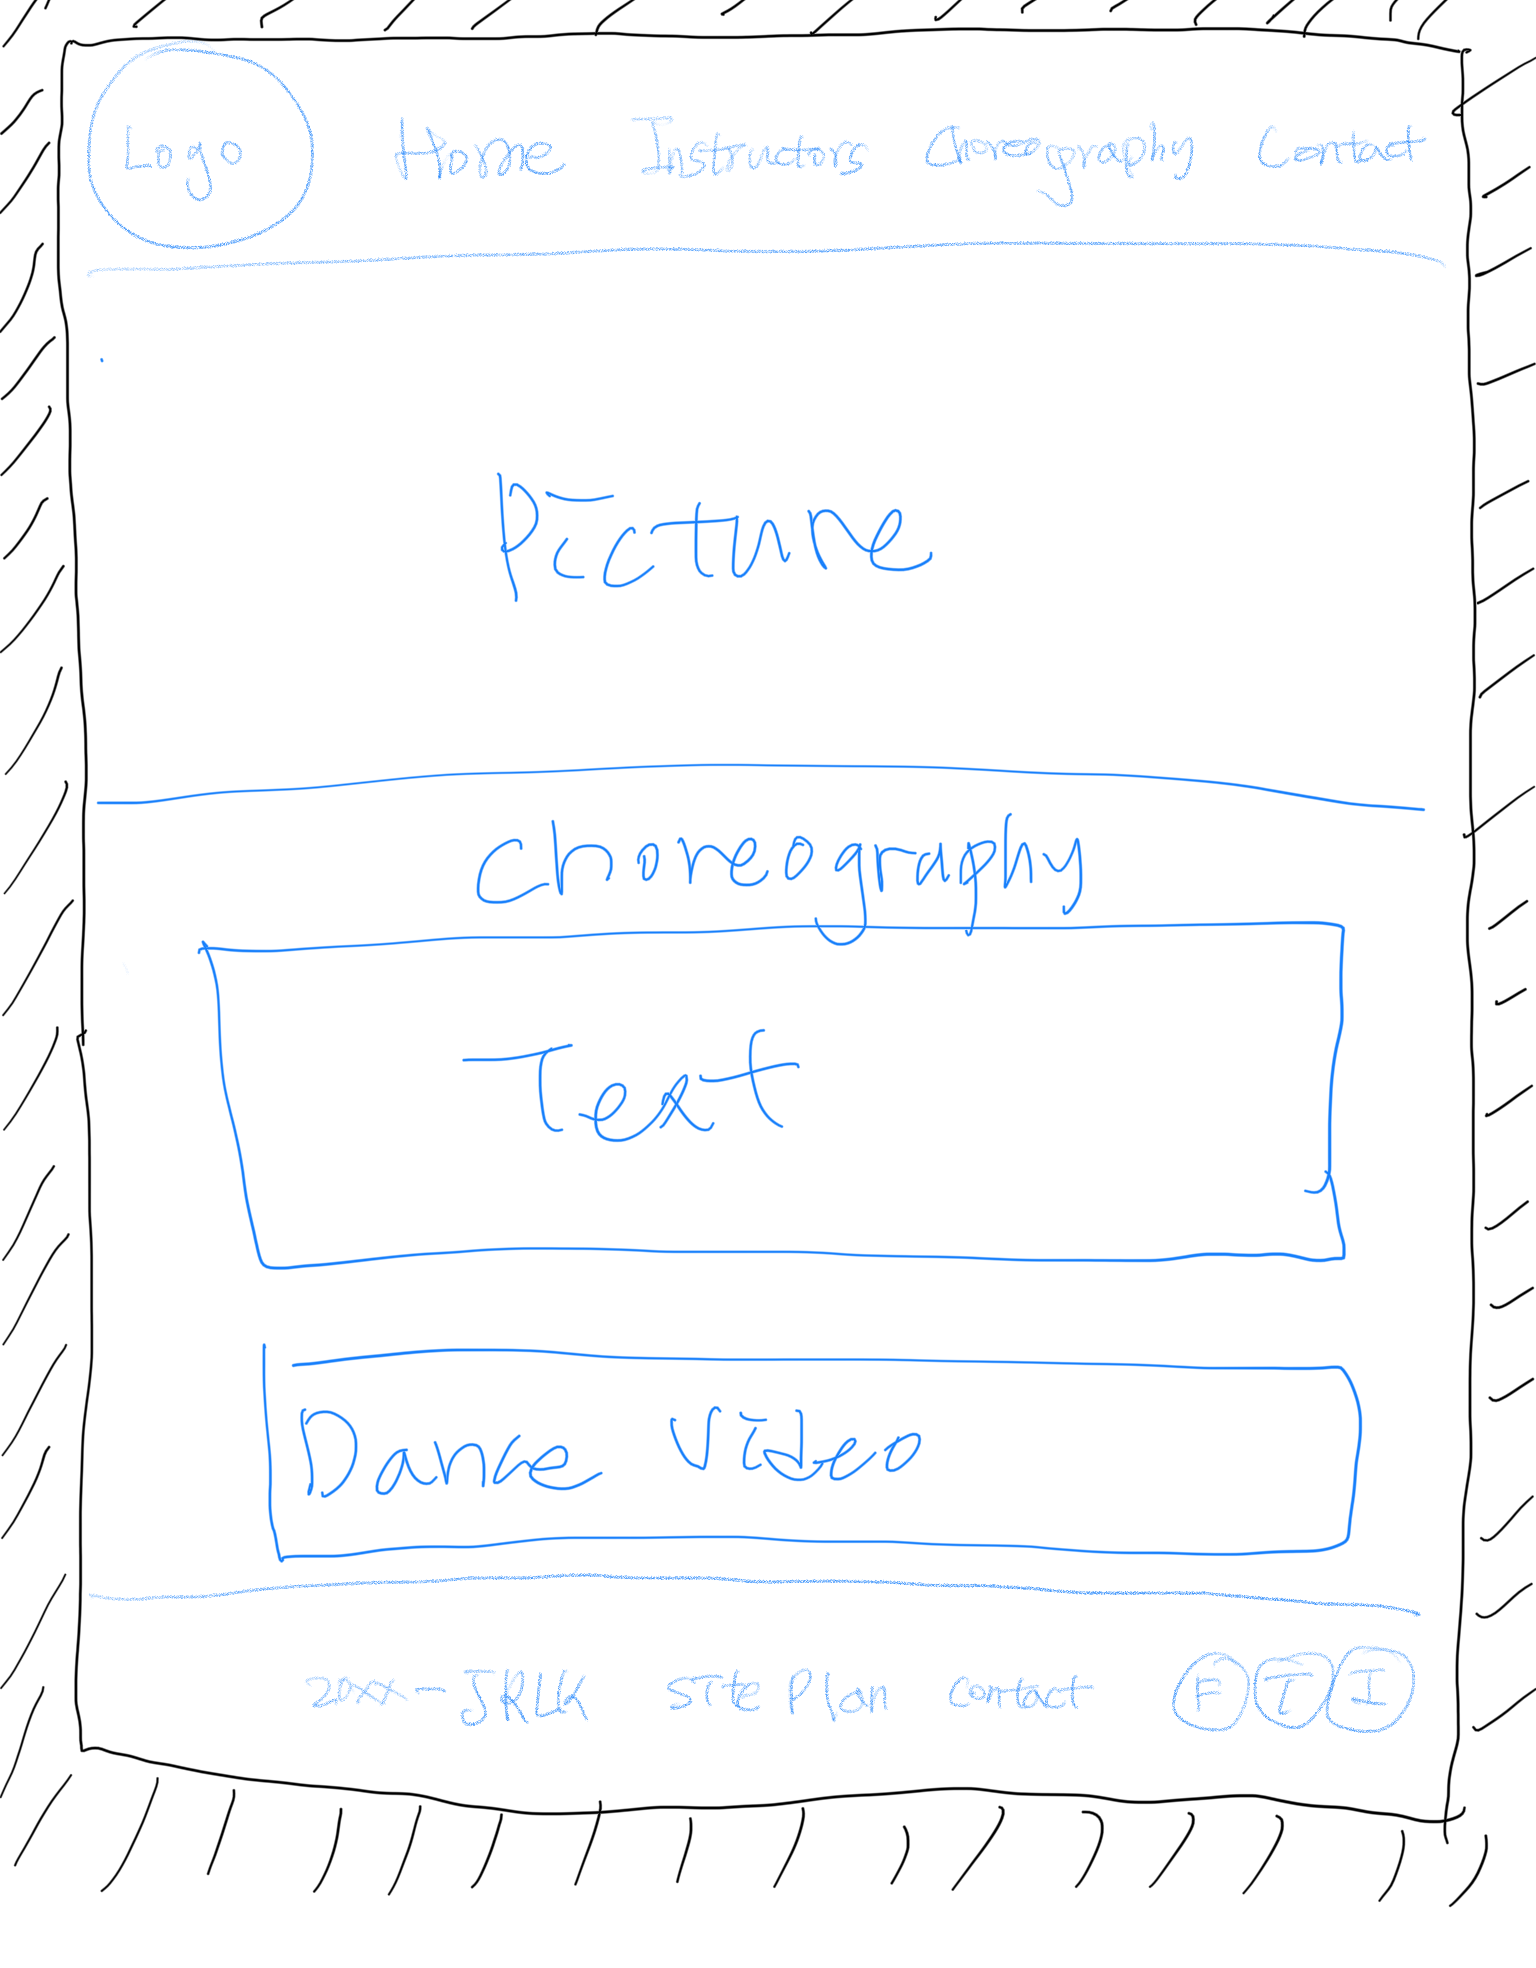 Logo Home Instructors Choreography Contact
Picture
Choreography
Text
Dance Video
20xx - JRLK Site Plan Contact F T I